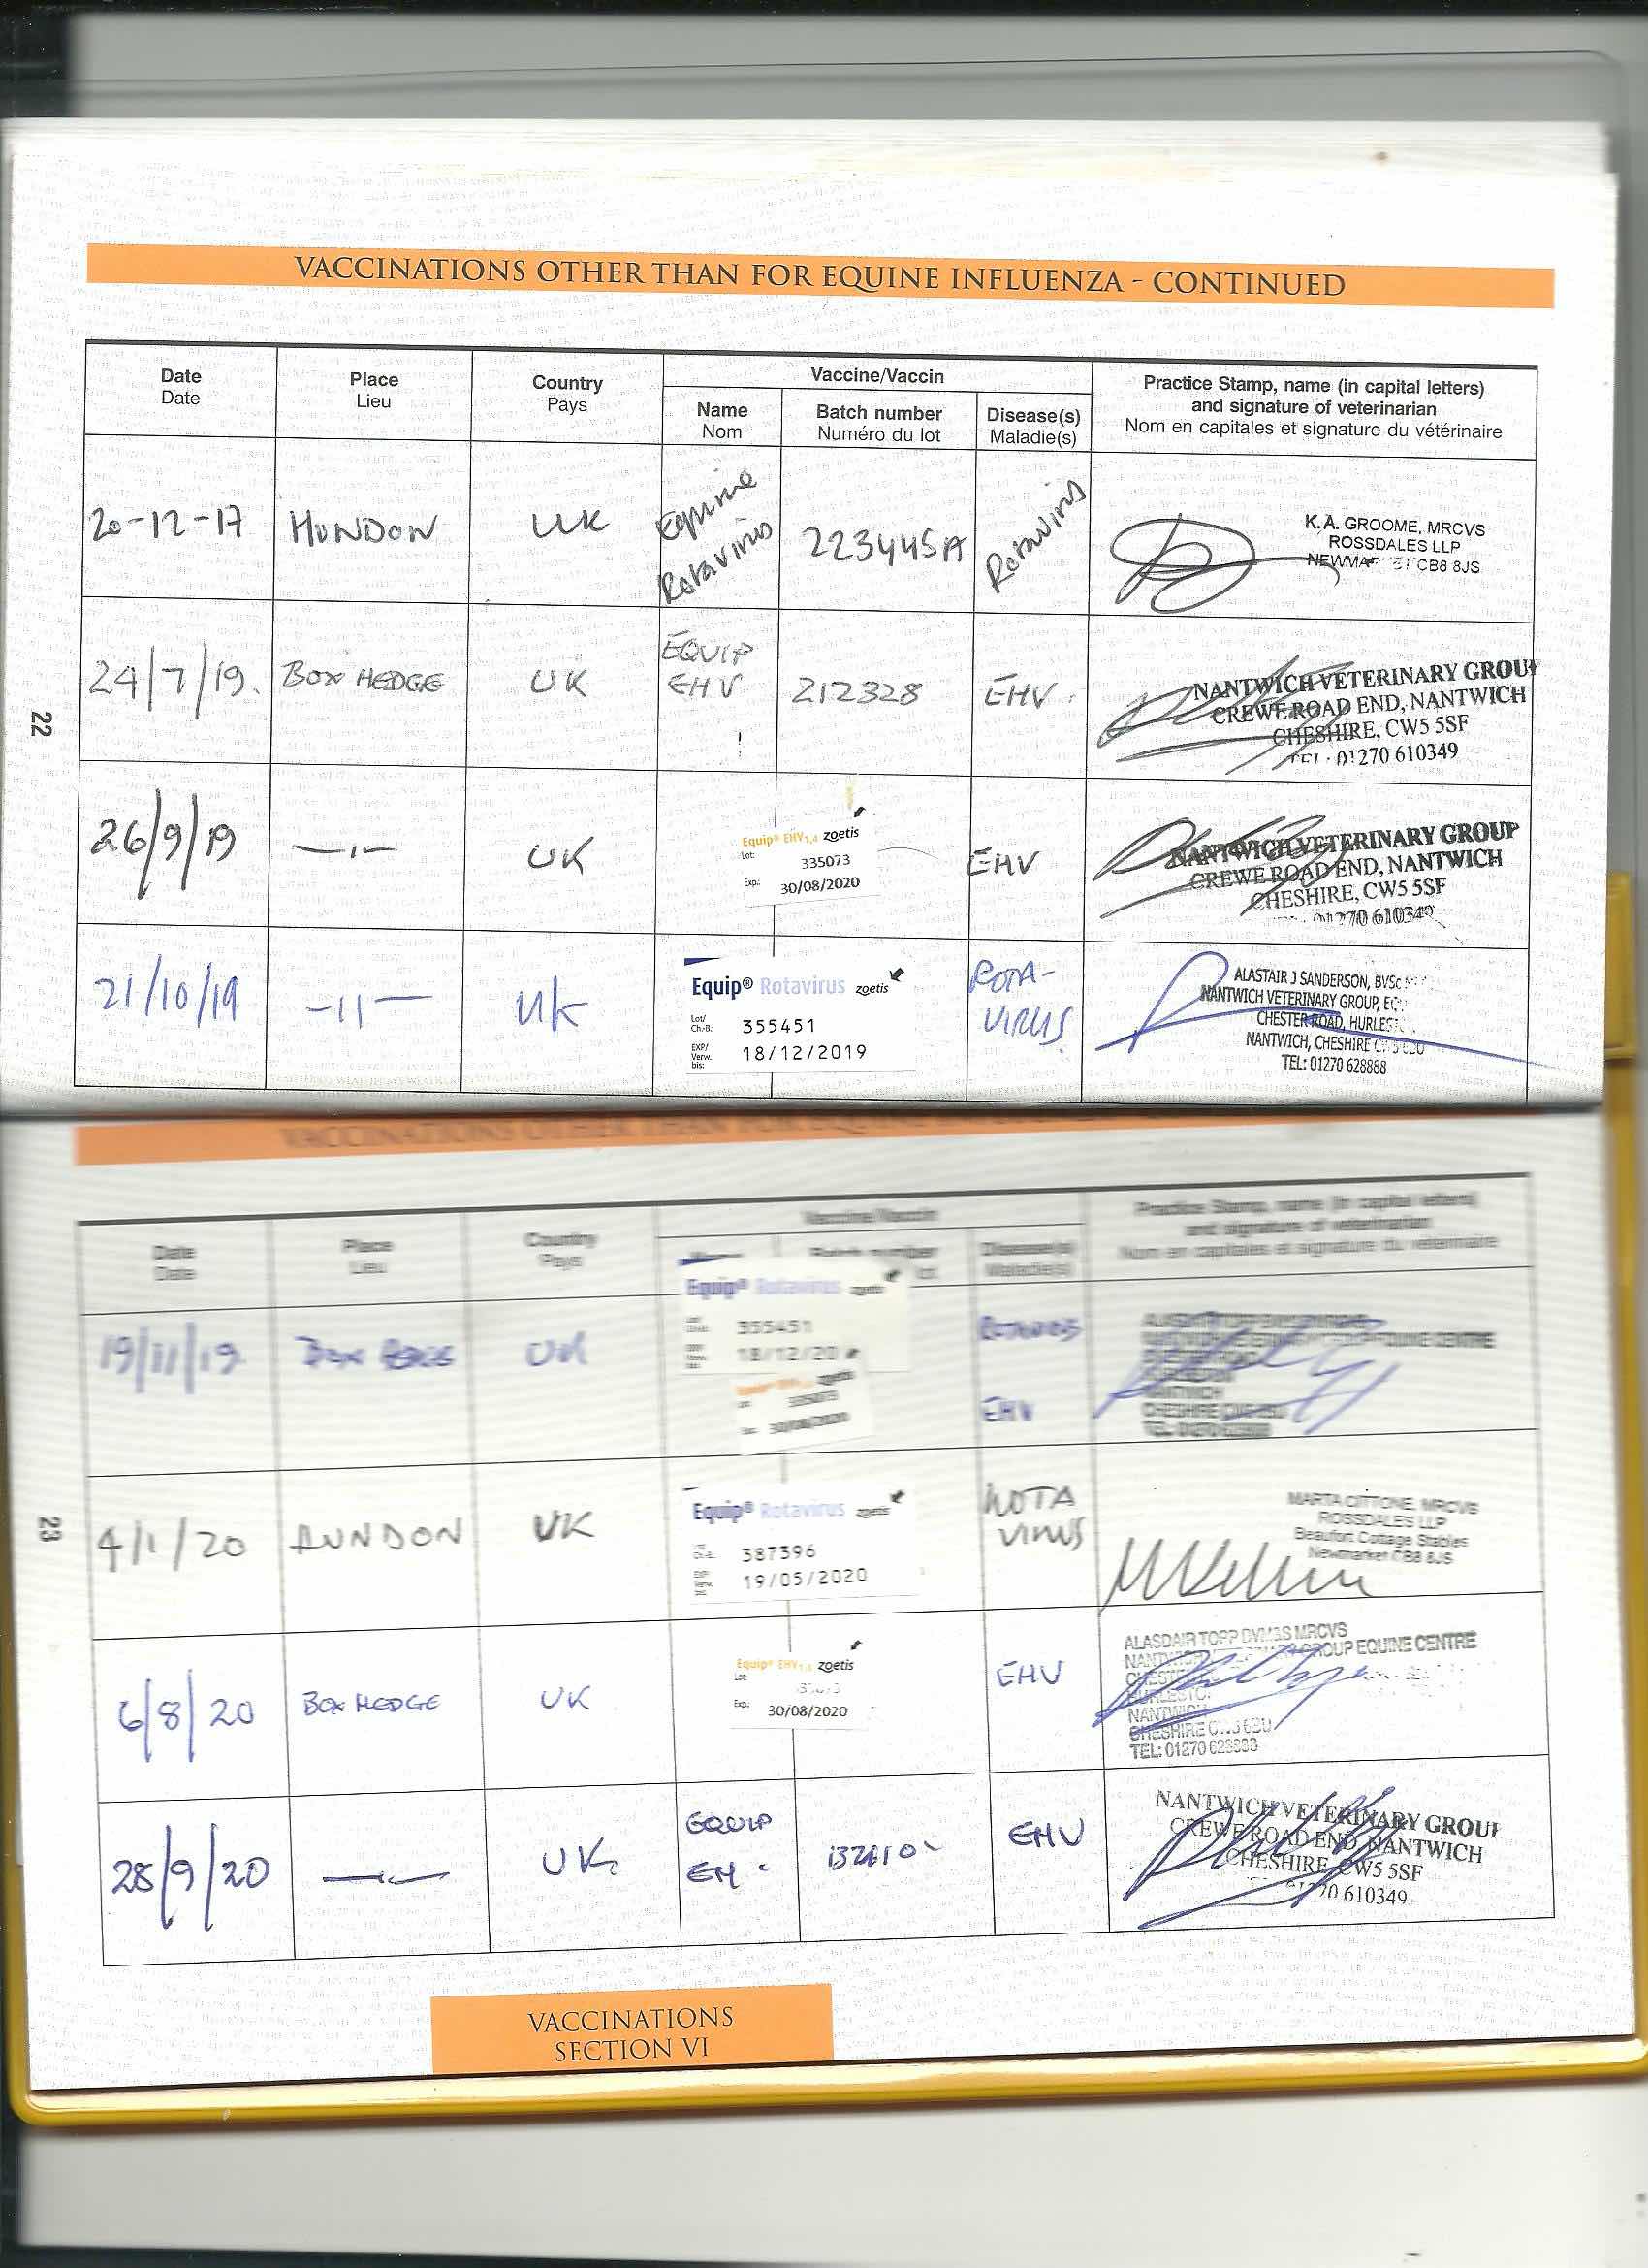 VACCINATIONS OTHER THAN FOR EQUINE INFLUENZA - CONTINUED
Date
Date
Place
Lieu
Country
Pays
Vaccine/Vaccin
Name
Nom
Batch number
Numéro du lot
Disease(s)
Maladie(s)
Practice Stamp, name (in capital letters)
and signature of veterinarian
Nom en capitales et signature du vétérinaire
20-12-17 HUNDON UK
Equine
Rotavirus
223445A
Rotavirus
K.A. GROOME, MRCVS
ROSSDALES LLP
CB8 8JS
24/7/19. BOX HEDGE UK
EQUIP
EHV
212328
EHV
NANTWICH VETERINARY GROUP
CREWE ROAD END, NANTWICH
CHESHIRE, CW5 5SF
TEL: 01270 610349
22
26/9/19 —"— UK
Equip® EHV1,4 zoetis
Lot: 335073
Exp.: 30/08/2020
EHV
NANTWICH VETERINARY GROUP
CREWE ROAD END, NANTWICH
CHESHIRE, CW5 5SF
01270 610349
21/10/19 -11- UK
Equip® Rotavirus zoetis
Lot/
Ch.-B.: 355451
EXP/
Verw.
bis: 18/12/2019
ROTA-
VIRUS.
ALASTAIR J SANDERSON, BVSc
NANTWICH VETERINARY GROUP,
CHESTER ROAD,
NANTWICH, CHESHIRE
TEL: 01270 628888
VACCINATIONS OTHER THAN FOR EQUINE
Date
Date
Place
Lieu
Country
Pays
Vaccine/Vaccin
Batch number
lot
Disease(s)
Maladie(s)
Practice Stamp, name (in capital letters)
and signature of veterinarian
Nom en capitales et signature du vétérinaire
19/11/19 UK
Equip® Rotavirus zoetis
355451
18/12/20
335073
30/08/2020
ROTAVIRUS
EHV
EQUINE CENTRE
NANTWICH
CHESHIRE
23
4/1/20 UK
Equip® Rotavirus zoetis
387396
19/05/2020
ROTA
VIRUS
MARTA CITTONE, MRCVS
ROSSDALES LLP
Beaufort Cottage Stables
Newmarket CB8 8JS
6/8/20 BOX HEDGE UK
Equip® EHV1,4 zoetis
Lot:
Exp.: 30/08/2020
EHV
ALASDAIR TOPP MRCVS
GROUP EQUINE CENTRE
NANTWICH
CHESHIRE
TEL: 01270
28/9/20 —"— UK
EQUIP
EHV
NANTWICH VETERINARY GROUP
CREWE ROAD END, NANTWICH
CHESHIRE, CW5 5SF
610349
VACCINATIONS
SECTION VI